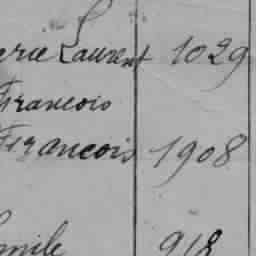 erie Laurent 1029
Francois
Francois 1908
Emile 918